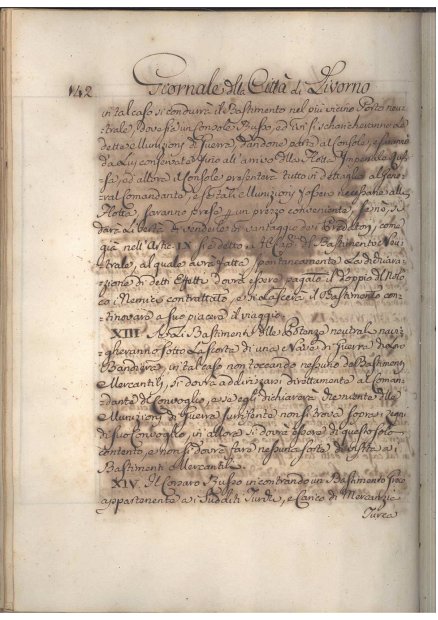 142 Giornale della Città di Livorno
in tal caso si condurrà il Bastimento nel più vicino Porto neu=
trale, dove sia un Console Russo, ed ivi si scaricheranno le
dette Munizioni di Guerra, dandone al Console, e saranno
da Lui conservate fino all' arrivo della Flotta Imperiale Rus=
sa, ed allora il Console presenterà tutto in dettaglio al Gene=
ral Comandante, e se tali Munizioni necessarie alla
Flotta, saranno prese p un prezzo conveniente, se nò, si
darà Libertà di venderle in vantaggio dei Predatori, come
già nell' Arte. IX si è detto, e al Cap. del Bastimento Neu=
trale, al quale avrà fatta spontaneamente La dichiara=
zione di detti Effetti dovrà essere pagato il doppio di Nolo
co i Nemici contrattato, e si Lascerà il Bastimento con=
tinovare a suo piacere il viaggio.
XIII Bastimenti delle Potenze neutrali navi=
gheranno sotto La scorta di una Nave di Guerra di Loro
Bandiera, in tal caso non toccando nessuno dei Bastimenti
Mercantili, si dovrà addirizzarsi direttamente al Coman=
dante di Convoglio, e se egli dichiarerà che niente delle
Munizioni di Guerra non si trova sopra i Legni
di suo Convoglio, in allora si dovrà essere di questo solo
contento, e non si dovrà fare nessuna sorte di visita a i
Bastimenti Mercantili
XIV Il Corsaro Russo incontrando un Bastimento
appartenente a i Sudditi Turchi, e Carico di Mercanzie
Turca